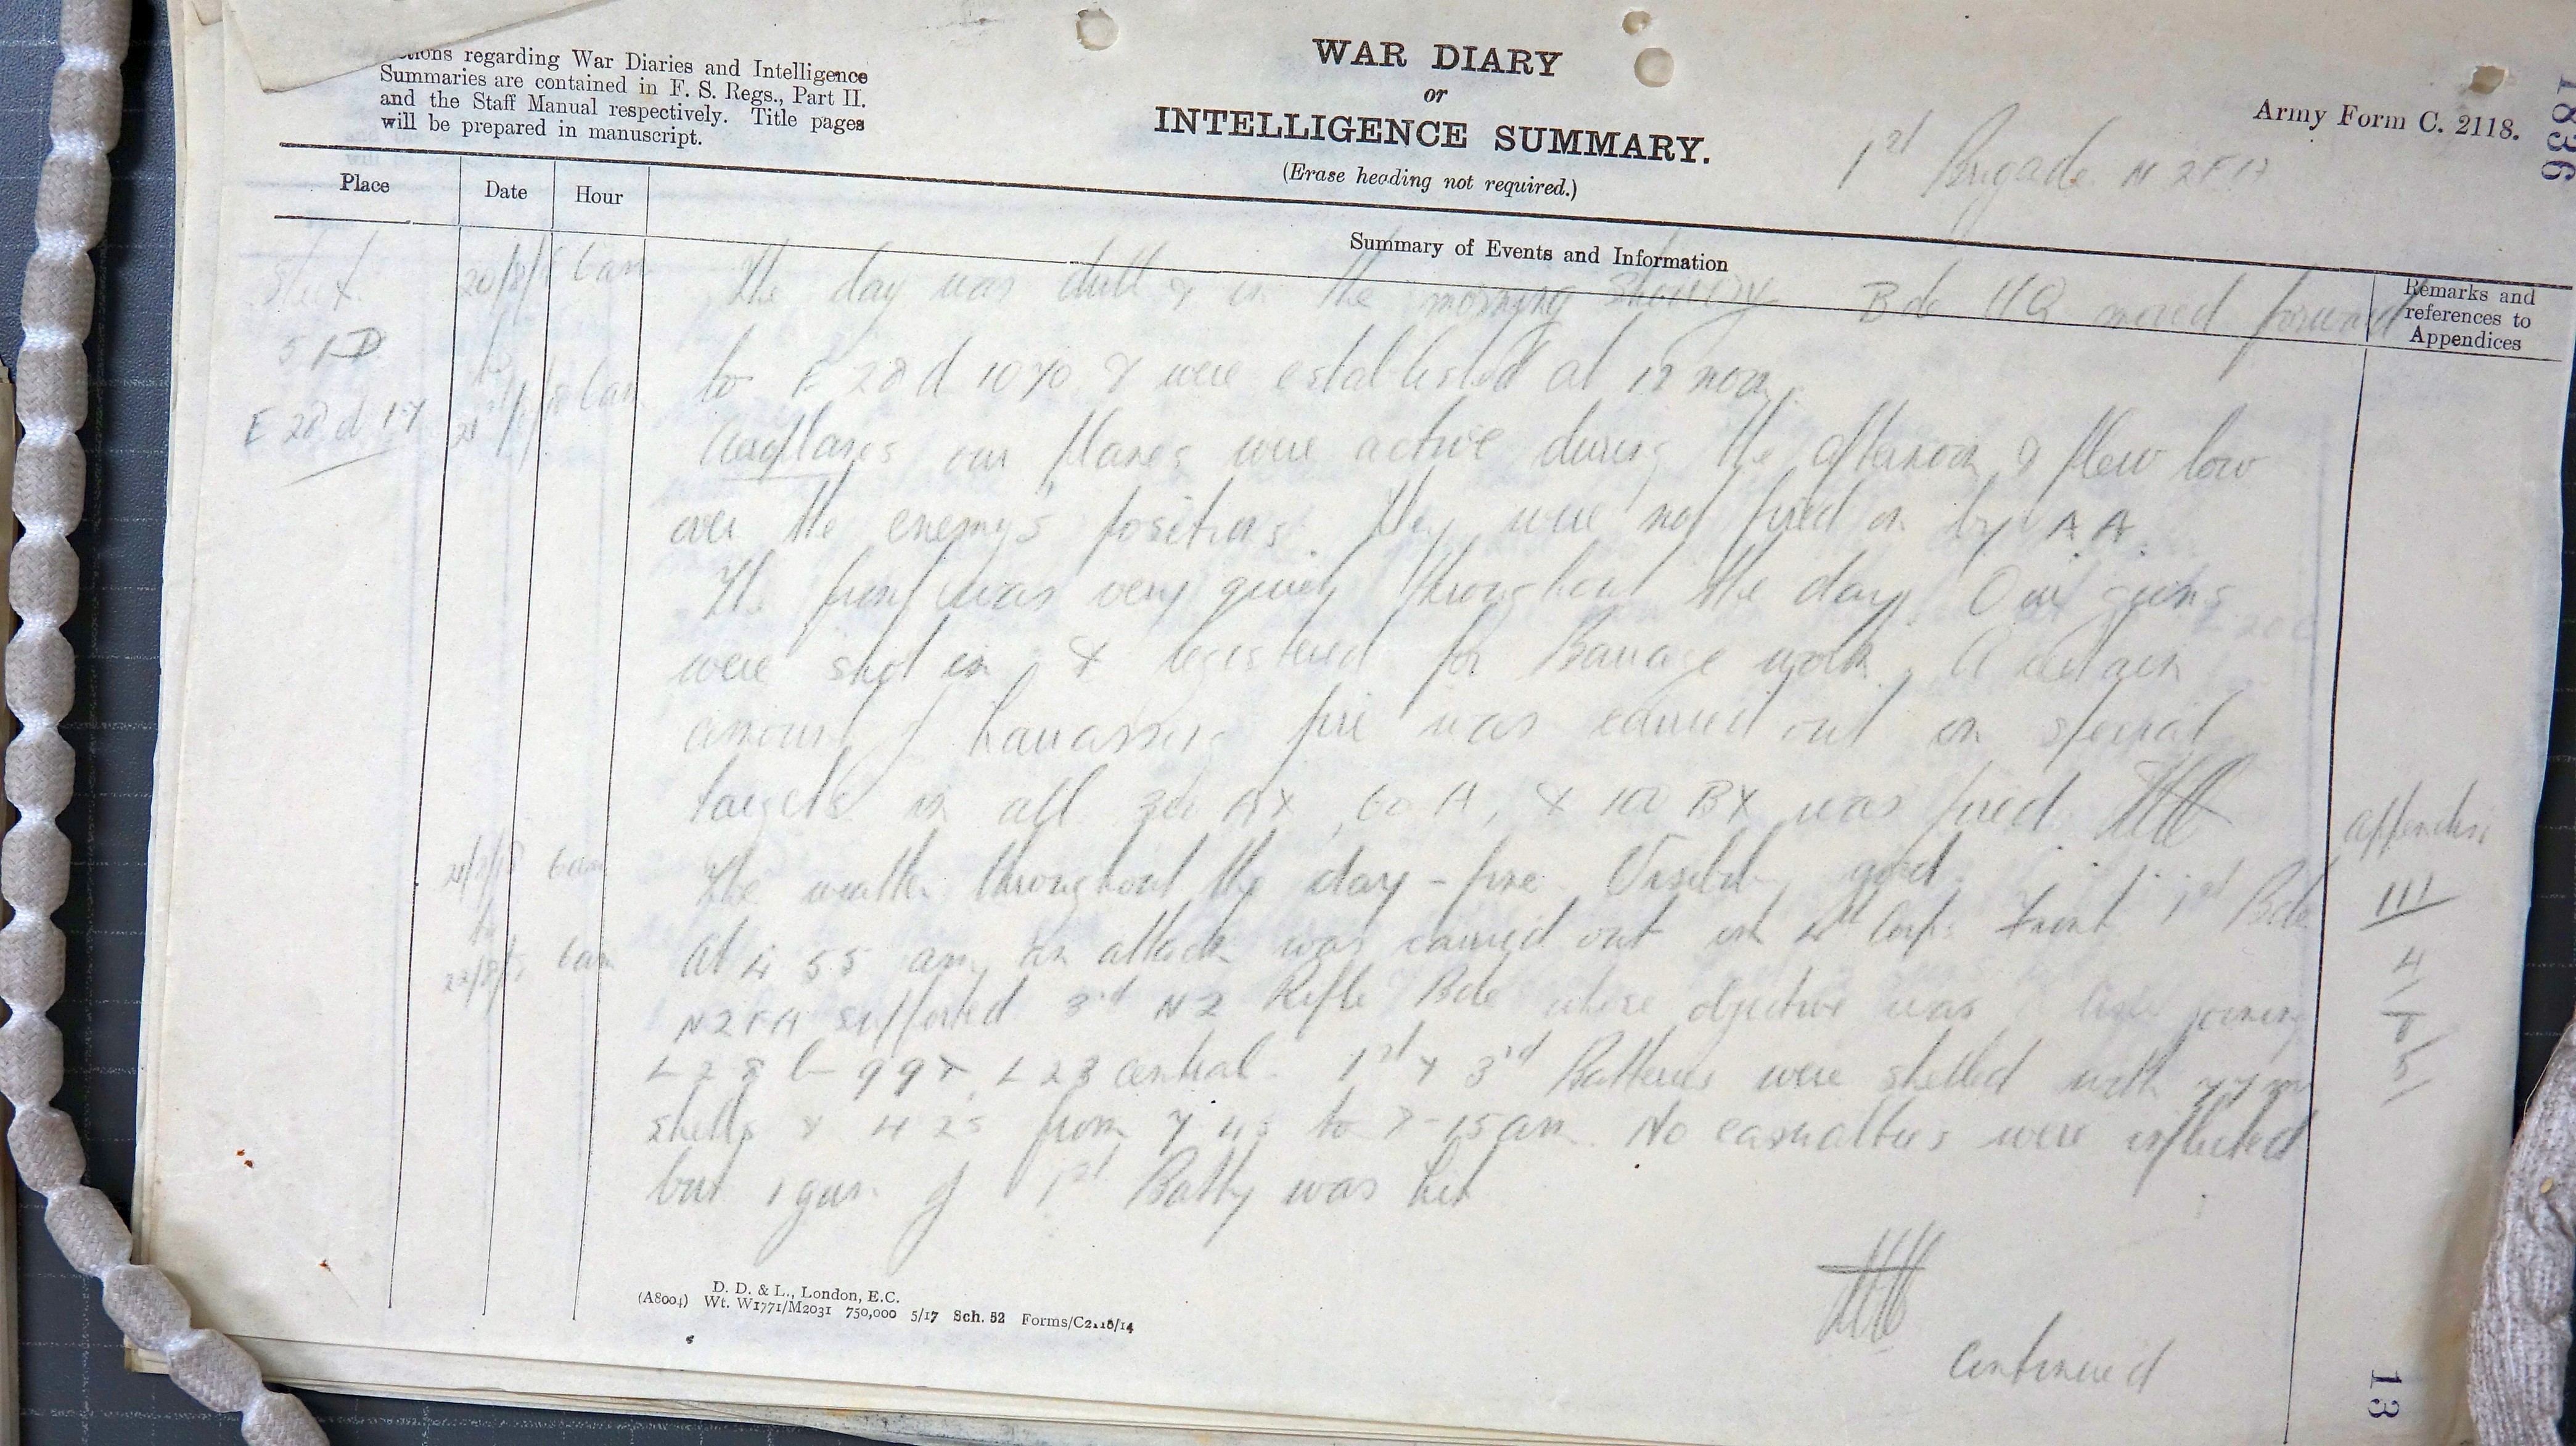 tions regarding War Diaries and Intelligence
Summaries are contained in F. S. Regs., Part II.
and the Staff Manual respectively. Title pages
will be prepared in manuscript.
WAR DIARY
or
INTELLIGENCE SUMMARY.
(Erase heading not required.)
1st Brigade N Z F A
Army Form C. 2118.
1836
Place
Date
Hour
Summary of Events and Information
Remarks and
references to
Appendices
Sheet
57D
E 28 d 1.7
20/8/18 6 am
to
21/8/18 6 am
The day was dull & in the morning showery Bde HQ moved forward
to E 28 d 10 70 & were established at 12 noon.
Aeroplanes our planes were active during the afternoon & flew low
over the enemy's positions. They were not fired on by A A.
The front was very quiet throughout the day. Our guns
were shot in & registered for Barrage work. A certain
amount of harassing fire was carried out on special
targets in all AX, 60 A, & 100 BX was fired
21/8/18 6 am
to
22/8/18 6 am
The weather throughout the day - fine. Visibility good.
At 4 55 am an attack was carried out on 4th Corps Front 1st Bde
NZFA supported 3rd NZ Rifle Bde whose objective was a line joining
L 28 b 99 L 23 central. 1st & 3rd Batteries were shelled with 77 m
shells & 4 2s from 7 45 to 8-15 am. No casualties were inflicted
but 1 gun of 1st Batty was hit
appendix
III
4
5
continued
D. D. & L., London, E.C.
(A8004) Wt. W1771/M2031 750,000 5/17 Sch. 52 Forms/C2118/14
13